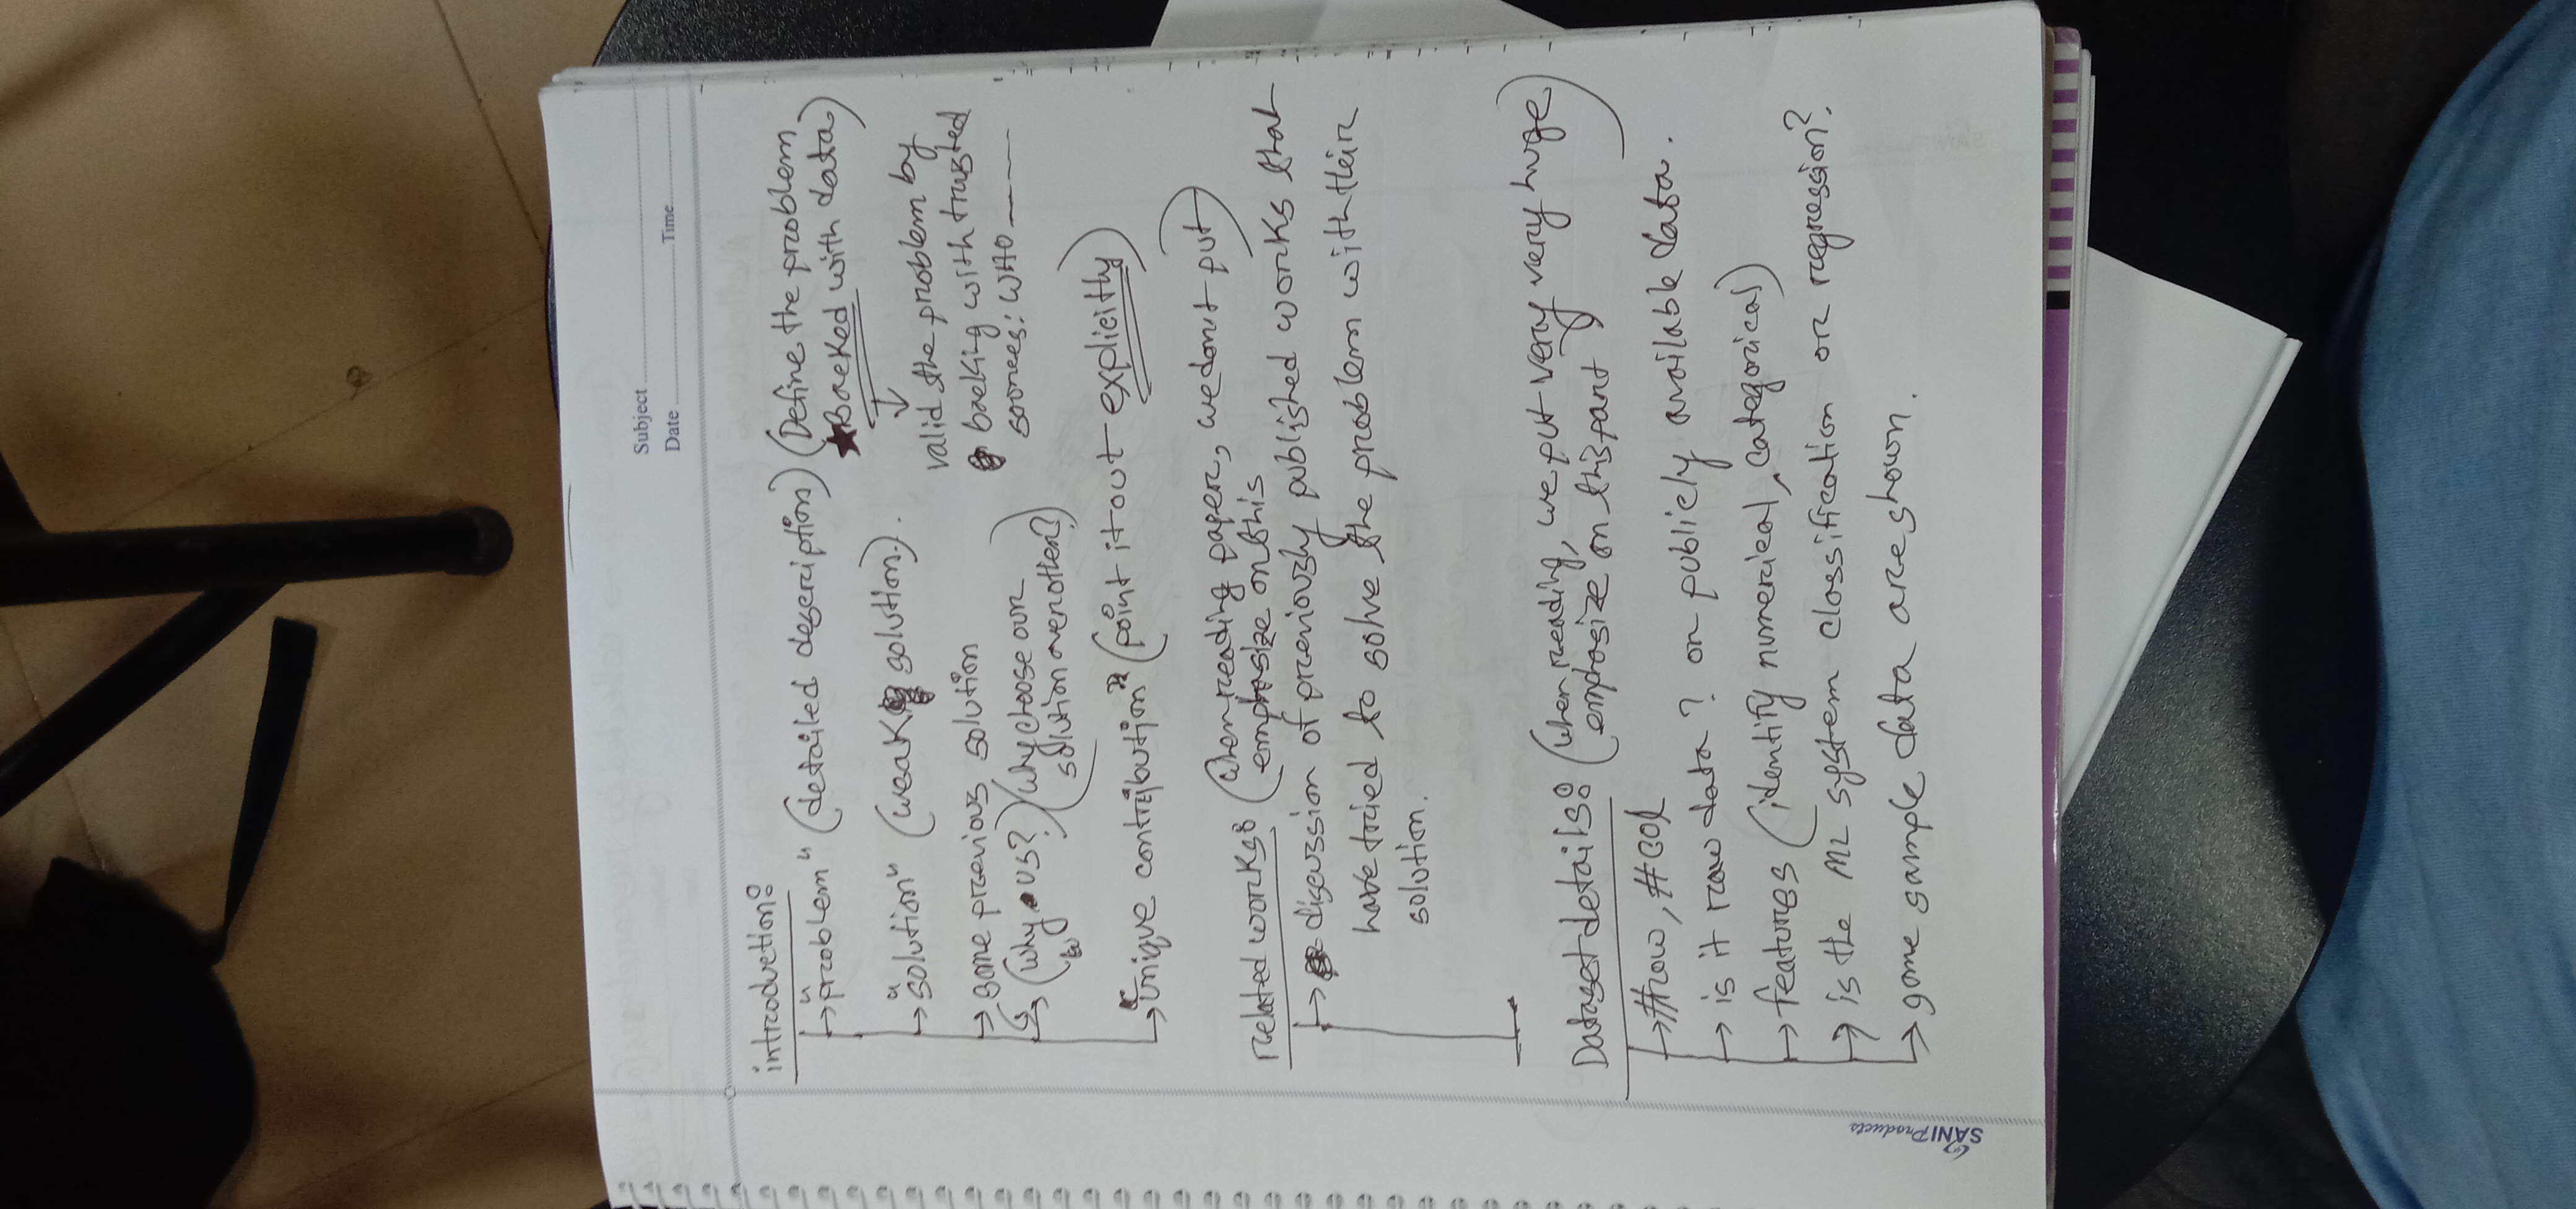 Subject
Date Time
introduction:
→ "problem" (detailed description) (Define the problem
★ Backed with data)
→ "solution" (weak solution.).
valid the problem by
backing with trusted
sources: WHO
→ some previous solution
→ (why us?) (why choose our
solution over other?)
→ "Unique contribution" (point it out explicitly)
related works: (when reading paper, we don't put
emphasize on this)
→ discussion of previously published works that
have tried to solve the problem with their
solution.
Dataset details: (when reading, we put very very huge
emphasize on this part)
→ #row, #col
→ is it raw data? or publicly available data.
→ features (identify numerical, categorical)
→ is the ML system classification or regression?
→ some sample data are shown.
SANI Products